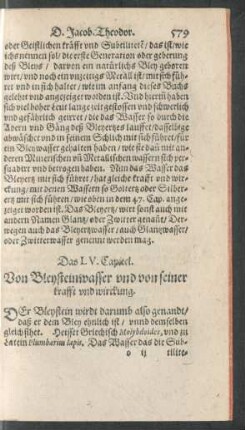 D. Jacob. Theodor. 579
oder Geistlichen kräfft vnd Subteilitet / das ist / wie
ich es nennen sol / die erste Generation oder geberung
deß Bleys / darvon ein natürlichs Bley geboren
wirt / vnd noch ein vnzeitigs Metall ist / mit sich füh-
ret vnd in sich haltet / wie im anfang dieses Buchs
gelehrt vnd angezeiget worden ist. Vnd hierin haben
sich viel
das Wasser so durch die
Adern vnd Gäng deß Bleyertzes lauffet / dasselbige
abwäschet vnd in seinem Schlich mit sich führet / für
ein Bleywasser gehalten haben / wie sie dañ mit an-
deren Minerischen vñ Metallischen wassern sich ver-
 vnd betrogen haben. Nun das Wasser das
Bleyertz mit sich führet / gar gleiche krafft vnd wir-
ckung / mit denen Wassern so Goltertz oder Silber-
ertz mit sich führen / wie oben in dem 47. Cap. ange-
zeiget worden ist. Das Bleyertz / wirt sonst auch mit
andern Namen Glantz / oder Zwitter genañt / Der-
wegen auch das Bleyertzwasser / auch Glantzwasser /
oder Zwitterwasser genennt werden mag.
Das LV. Capitel.
Von Bleysteinwasser vnd von seiner
krafft vnd wirckung.
DEr Bleystein wirdt darumb also genandt /
daß er dem Bley ehnlich ist / vnnd demselben
gleich sihet. Heisset Griechisch molybdoides, vnd zu
Latein Plumbarius lapis, Das Wasser das die Sub-
o ij tilite-